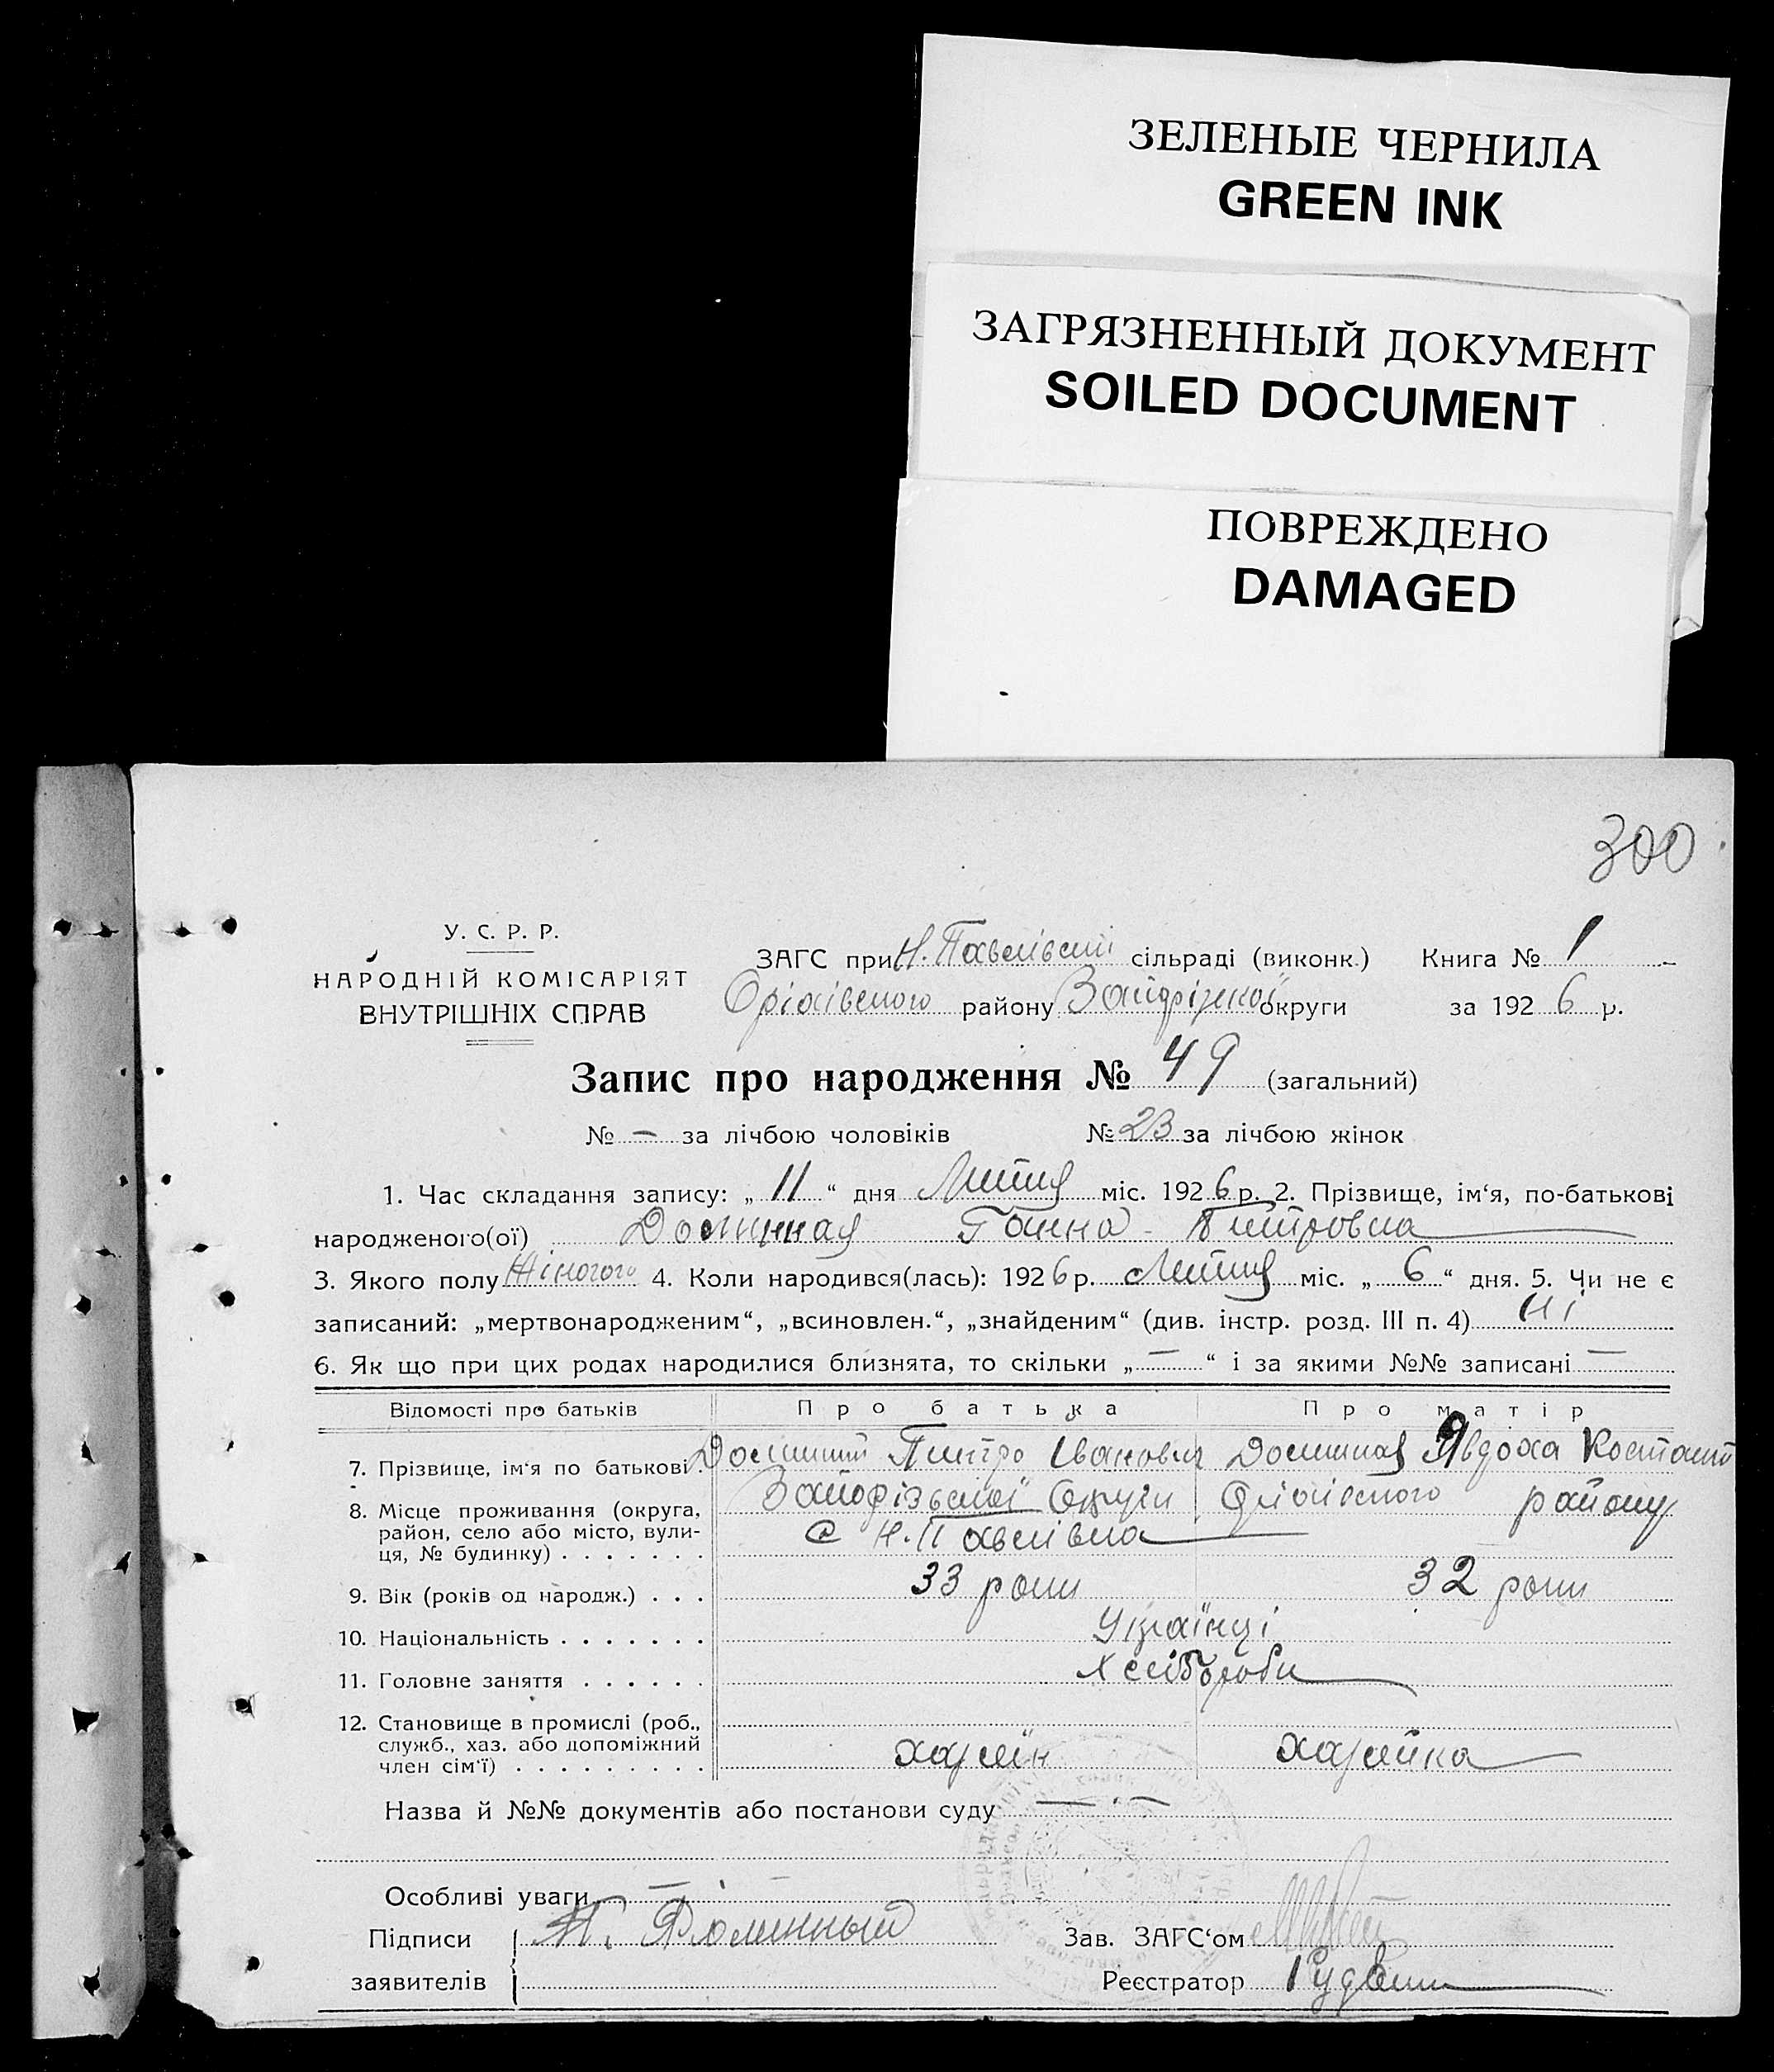 ЗЕЛЕНЫЕ ЧЕРНИЛА
GREEN INK
ЗАГРЯЗНЕННЫЙ ДОКУМЕНТ
SOILED DOCUMENT
ПОВРЕЖДЕНО
DAMAGED
300
У. С. Р. Р.
НАРОДНІЙ КОМІСАРІЯТ
ВНУТРІШНІХ СПРАВ
ЗАГС при Н. Павлівській сільраді (виконк.) Книга № 1
Оріхівського району округи за 1926 р.
Запис про народження № 49 (загальний)
№ — за лічбою чоловіків № 23 за лічбою жінок
1. Час складання запису: „ 11 “ дня Липня міс. 1926 р. 2. Прізвище, ім‘я, по-батькові
народженого(ої) Долинная Ганна Петровна
3. Якого полу Жіночого 4. Коли народився(лась): 1926 р. Липня міс. „ 6 “ дня. 5. Чи не є
записаний: „мертвонародженим“, „всиновлен.“, „знайденим“ (див. інстр. розд. III п. 4) Ні
6. Як що при цих родах народилися близнята, то скільки „ — “ і за якими №№ записані —
Відомості про батьків Про батька Про матір
7. Прізвище, ім‘я по батькові. Долинний Петро Іванович Долинная Явдоха
8. Місце проживання (округа, округи Оріхівського району
район, село або місто, вули- с Н. Павлівка
ця, № будинку)
9. Вік (років од народж.) 33 роки 32 роки
10. Національність Українці
11. Головне заняття Хлібороби
12. Становище в промислі (роб.,
служб., хаз. або допоміжний
член сім‘ї) хазяїн хазяйка
Назва й №№ документів або постанови суду —
Особливі уваги —
Підписи П. Долинный Зав. ЗАГС‘ом
заявителів Реєстратор